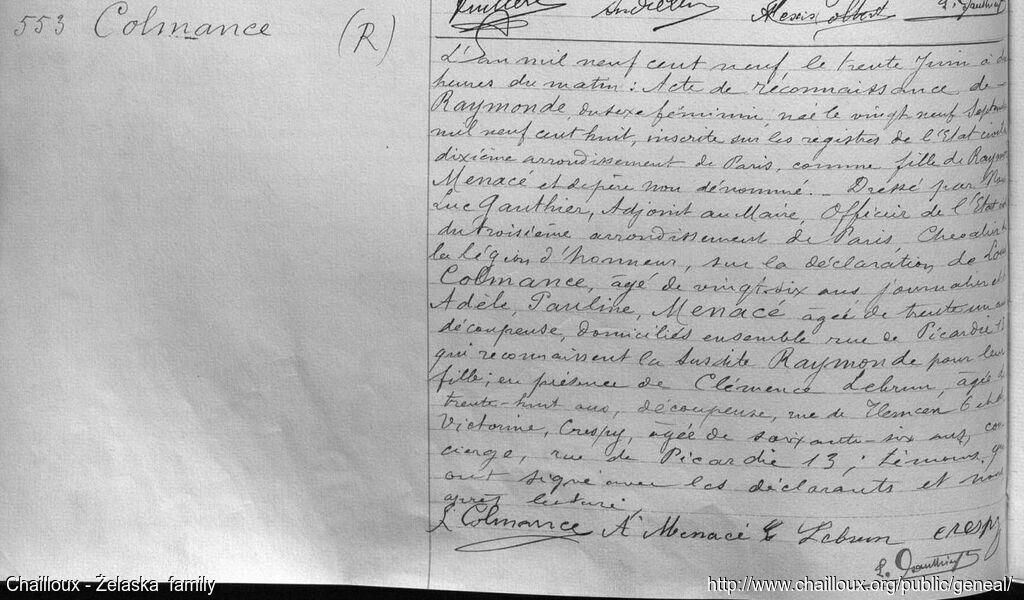 553 Colmance (R)
Alexis
L'an mil neuf cent neuf le trente Juin à
heures du matin : Acte de réconnaissance de
Raymonde, du sexe féminin, née le vingt neuf Septem
mil neuf cent huit, inscrite sur les registres de l'Etat civil
dixième arrondissement de Paris, comme fille de Raym
Menacé et de père non dénommé. _ Dressé par Nous
Luc Gauthier, Adjoint au Maire, Officier de l'Etat
du troisième arrondissement de Paris, Chevalier
la légion d'honneur, sur la déclaration de Lou
Colmance, âgé de vingt-six ans, journalier et
Adèle, Pauline, Menacé agée de trente un
découpeuse, domiciliés ensemble rue de Picardie 13
qui reconnaissent la susdite Raymonde pour leur
fille ; en présence de Clémence Lebrun, âgée
trente-huit ans, découpeuse, rue de Tlemcen 6 et
Victorine, Crespy, âgée de soixante-six ans, con
cierge, rue de Picardie 13 ; témoins, qui
ont signé avec les déclarants et nous
après lecture,
L Colmance A Menacé Lebrun crespy
L. Gauthier
Chailloux - Żelaska family
http://www.chailloux.org/public/geneal/